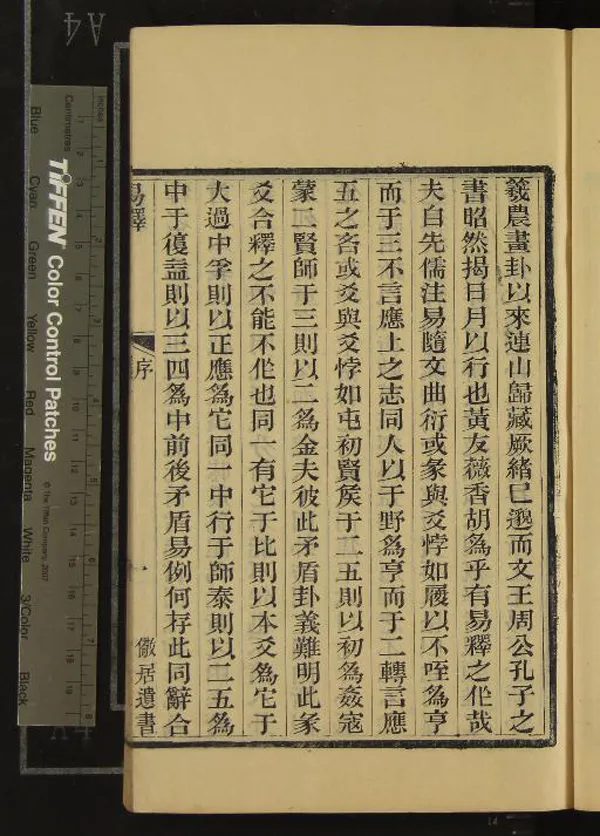 羲農畫卦以來連山歸藏厥緒已邈而文王周公孔子之
書昭然揭日月以行也黃友薇香胡為乎有易釋之作哉
夫自先儒注易隨文曲衍或彖與爻悖如履以不咥為亨
而于三不言應上之志同人以于野為亨而于二轉言應
五之吝或爻與爻悖如屯初賢矦于二五則以初為姦寇
蒙二賢師于三則以二為金夫彼此矛盾卦義難明此彖
爻合釋之不能不作也同一有它于比則以本爻為它于
大過中孚則以正應為它同一中行于師泰則以二五為
中于復益則以三四為中前後矛盾易例何存此同辭合
易釋
序
一
儆居遺書
A4
TIFFEN Color Control Patches
© The Tiffen Company, 2007
Centimetres
Inches
Blue
Cyan
Green
Yellow
Red
Magenta
White
3/Color
Black